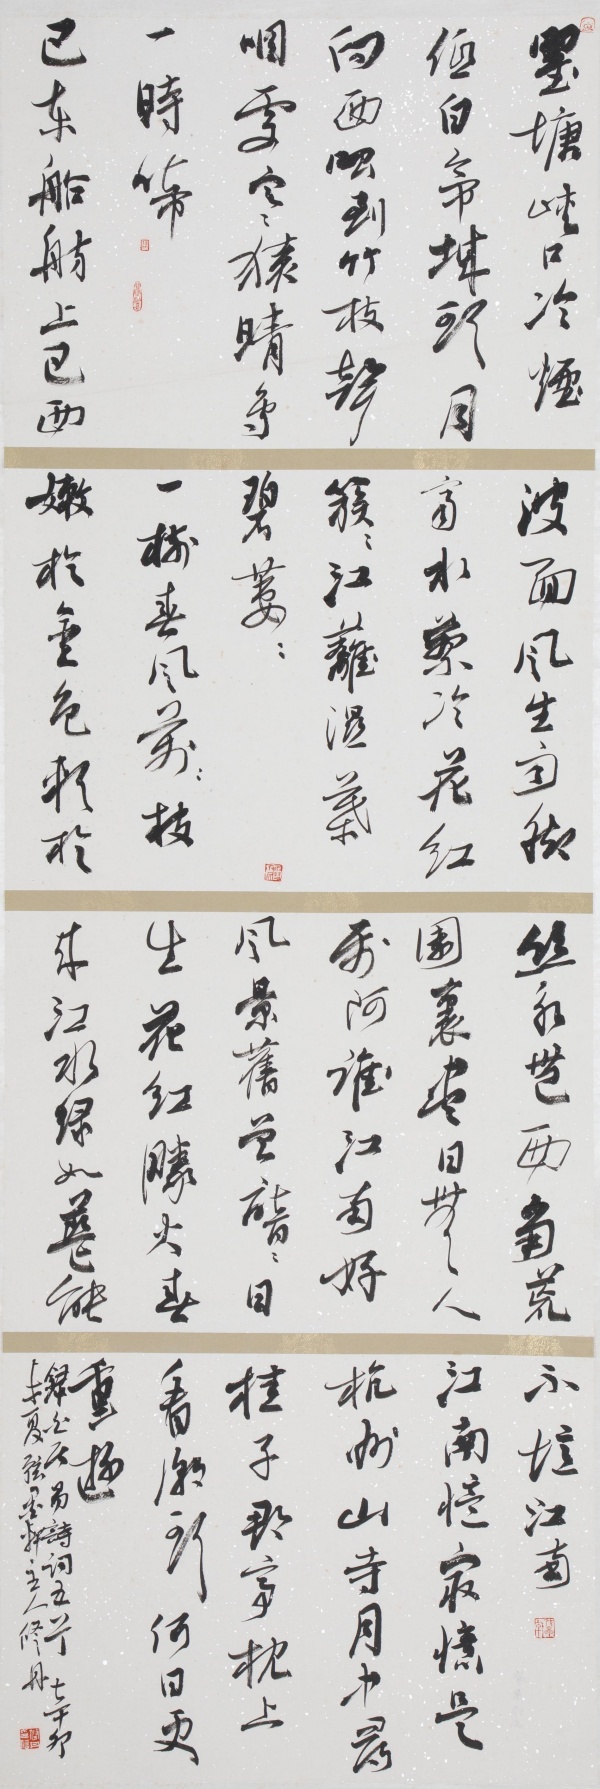 瞿塘峽口冷煙
低白帝城頭月
向西唱到竹枝聲
咽處寒猿晴鳥
一時啼
巴東船舫上巴西
波面風生雨腳
齊水蓼冷花紅
簇〻江蘺濕葉
碧萋〻
一樹春風萬〻枝
嫩於金色軟於
絲永豐西荒
園裏盡日無人
屬阿誰江南好
風景舊曾諳日
生花紅勝火春
來江水綠如藍能
不憶江南
江南憶最憶是
杭州山寺月中尋
桂子郡亭枕上
看潮頭何日更
重遊
錄白居易詩詞五首辛卯
夏墨軒主人修丹